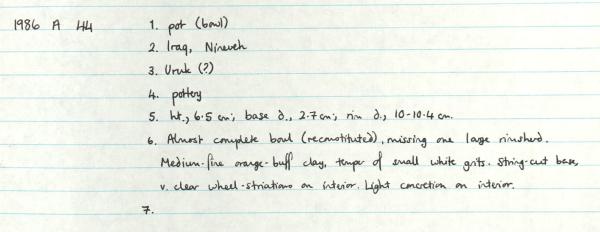 1986 A 44 1. pot (bowl)
2. Iraq, Nineveh
3. Uruk (?)
4. pottery
5. ht., 6.5 cm; base d., 2.7 cm; rim d., 10-10.4 cm.
6. Almost complete bowl (reconstituted), missing one large rimsherd.
Medium-fine orange-buff clay, temper of small white grits. String-cut base,
v. clear wheel-striations on interior. Light concretion on interior.
7.